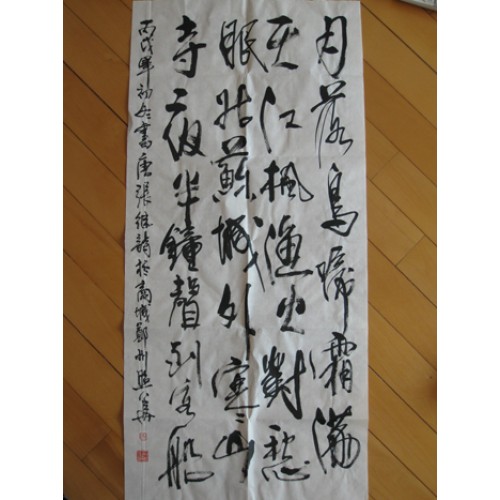 月落烏啼霜滿
天江楓漁火對愁
眠姑蘇城外寒山
寺夜半鐘聲到客船
丙戌年初冬書唐張继詩於商城鄭州